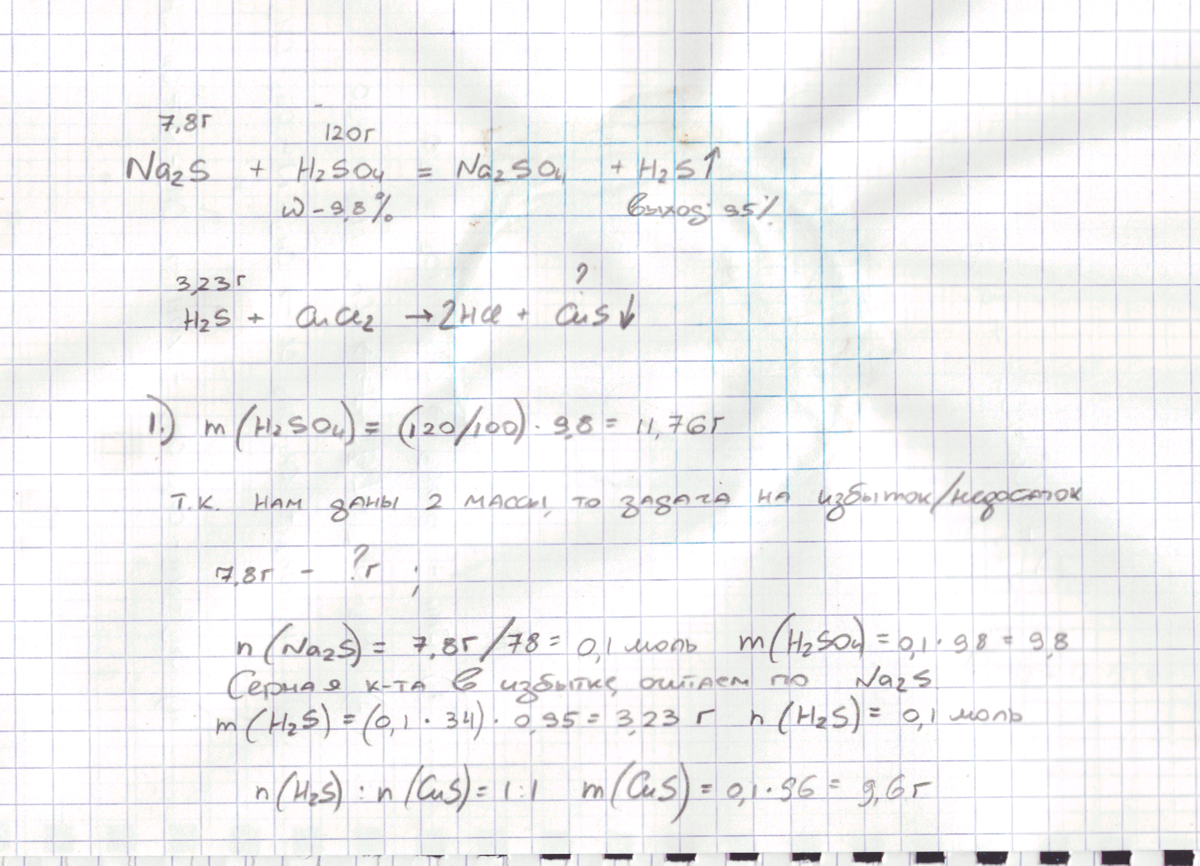 7,8г 120г
Na₂S + H₂SO₄ = Na₂SO₄ + H₂S↑
ω – 9,8% выход 95%
3,23г ?
H₂S + CuCl₂ → 2HCl + CuS↓
1.) m(H₂SO₄) = (120/100) · 9,8 = 11,76г
Т.К. НАМ ДАНЫ 2 МАССЫ, ТО ЗАДАЧА НА избыток/недосаток
7,8г – ?г ;
n(Na₂S) = 7,8г/78 = 0,1 моль m(H₂SO₄) = 0,1 · 98 = 9,8
Серная к-та в избытке, считаем по Na₂S
m(H₂S) = (0,1 · 34) · 0,95 = 3,23 г n(H₂S) = 0,1 моль
n(H₂S) : n(CuS) = 1:1 m(CuS) = 0,1 · 96 = 9,6г